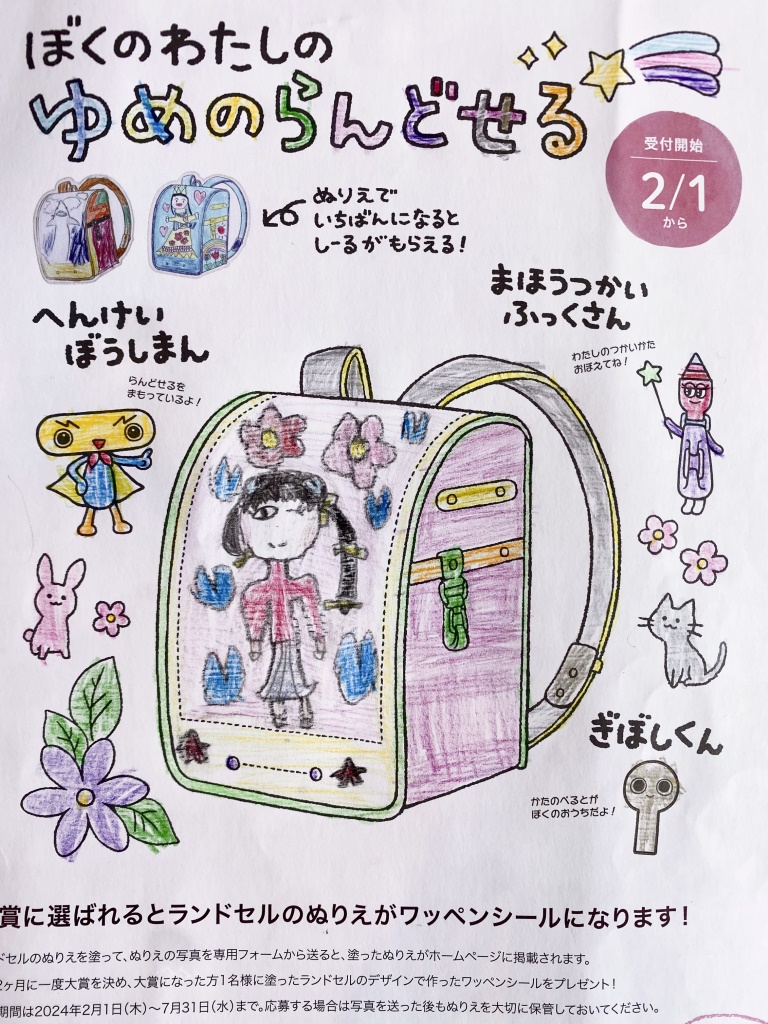 ぼくのわたしの
ゆめのらんどせる
受付開始
2/1
から
ぬりえで
いちばんになると
しーるがもらえる!
まほうつかい
ふっくさん
わたしのつかいかた
おぼえてね!
へんけい
ぼうしまん
らんどせるを
まもっているよ!
ぎぼしくん
かたのべるとが
ぼくのおうちだよ!
賞に選ばれるとランドセルのぬりえがワッペンシールになります!
ドセルのぬりえを塗って、ぬりえの写真を専用フォームから送ると、塗ったぬりえがホームページに掲載されます。
2ヶ月に一度大賞を決め、大賞になった方1名様に塗ったランドセルのデザインで作ったワッペンシールをプレゼント!
期間は2024年2月1日(木)〜7月31日(水)まで。応募する場合は写真を送った後もぬりえを大切に保管しておいてください。